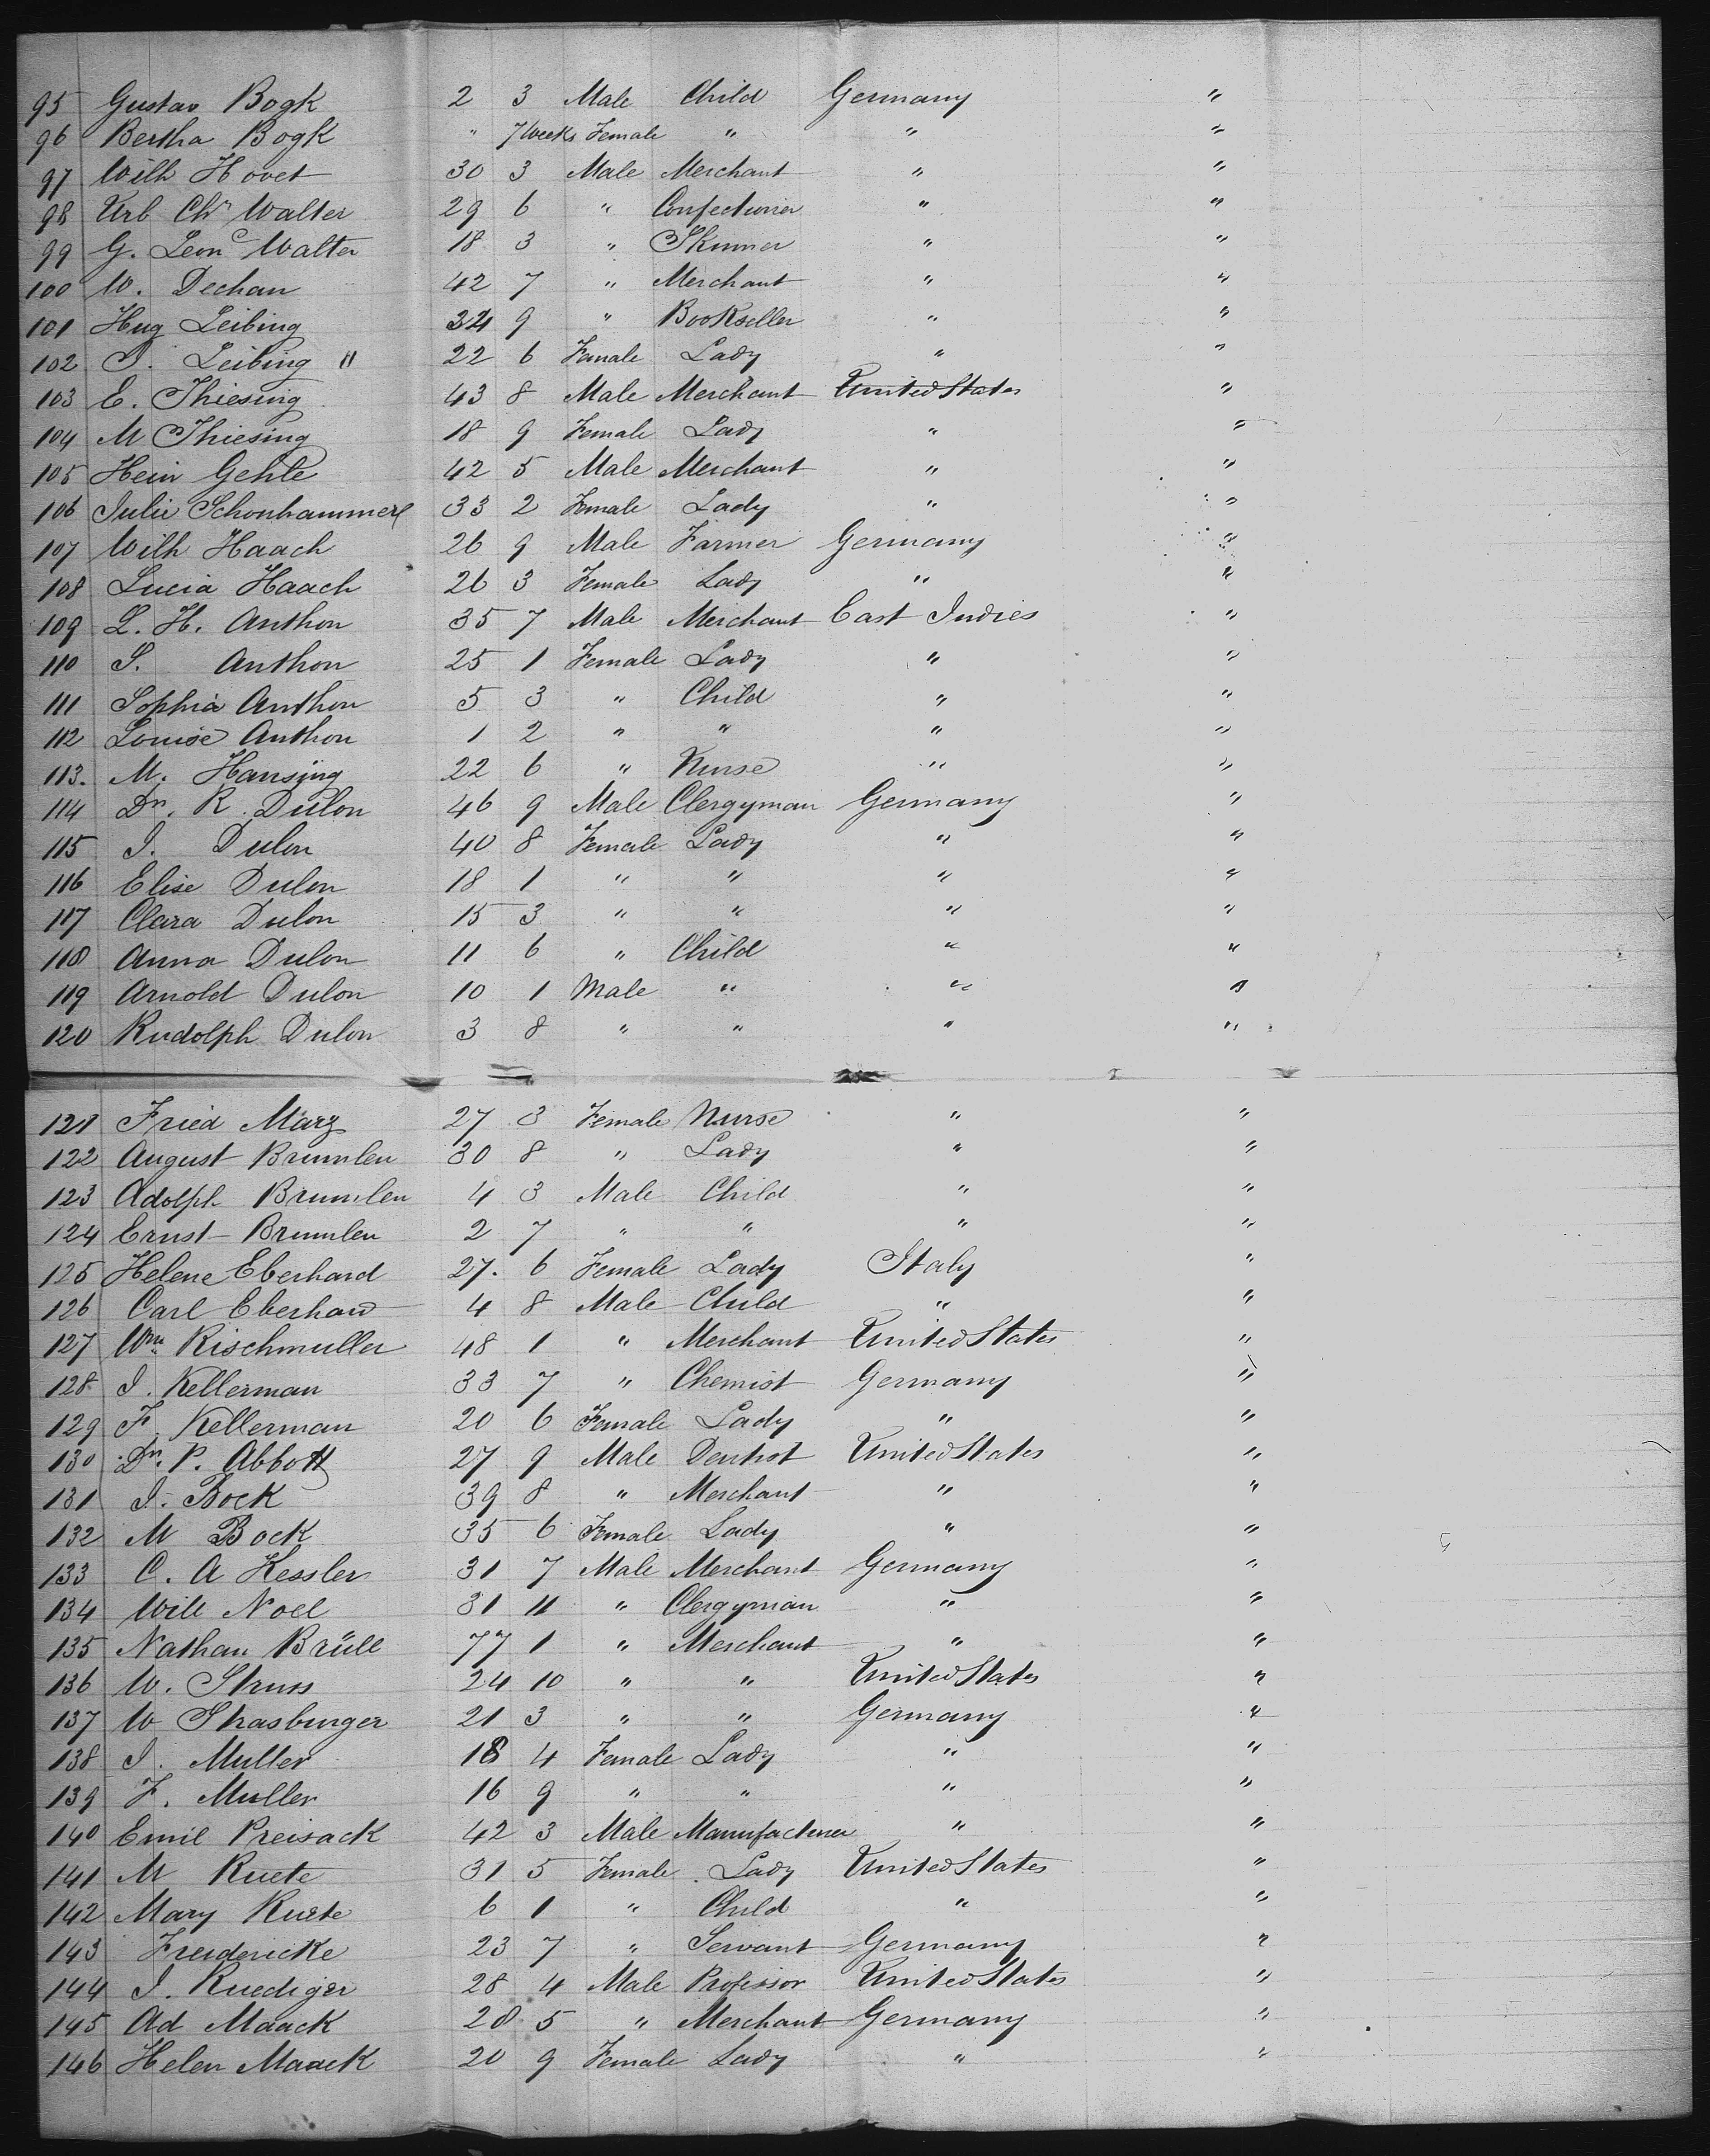 95 Gustav Bogk 2 3 Male Child Germany "
96 Bertha Bogk " 7 Weeks Female " " "
97 Wilh Hovet 30 3 Male Merchant " "
98 Urb Chr Walter 29 6 " Confectioner " "
99 G. Leonc Walter 18 3 " Skinner " "
100 W. Dechan 42 7 " Merchant " "
101 Hug Leibing 34 9 " Bookseller " "
102 I. Leibing " 22 6 Female Lady " "
103 E. Thiesing 43 8 Male Merchant United States "
104 M Thiesing 18 9 Female Lady " "
105 Hein Gehle 42 5 Male Merchant " "
106 Julie Schonhammer 33 2 Female Lady " "
107 Wilh Haach 26 9 Male Farmer Germany "
108 Lucia Haach 26 3 Female Lady " "
109 L. H. Anthon 35 7 Male Merchant East Indies "
110 S. Anthon 25 1 Female Lady " "
111 Sophia Anthon 5 3 " Child " "
112 Louise Anthon 1 2 " " " "
113. M. Hansing 22 6 " Nurse " "
114 Dr. R. Dulon 46 9 Male Clergyman Germany "
115 I. Dulon 40 8 Female Lady " "
116 Elise Dulon 18 1 " " " "
117 Clara Dulon 15 3 " " " "
118 Anna Dulon 11 6 " Child " "
119 Arnold Dulon 10 1 Male " " "
120 Rudolph Dulon 3 8 " " " "
121 Fried Marz 27 3 Female Nurse " "
122 August Brumlen 30 8 " Lady " "
123 Adolph Brumlen 4 3 Male Child " "
124 Ernst Brumlen 2 7 " " " "
125 Helene Eberhard 27. 6 Female Lady Italy "
126 Carl Eberhard 4 8 Male Child " "
127 Wm Rischmuller 48 1 " Merchant United States "
128 I. Kellerman 33 7 " Chemist Germany "
129 F. Kellerman 20 6 Female Lady " "
130 Dr. P. Abbott 27 9 Male Dentist United States "
131 I. Bock 39 8 " Merchant " "
132 M Bock 35 6 Female Lady " "
133 C. A Kessler 31 7 Male Merchant Germany "
134 Will Noel 31 11 " Clergyman " "
135 Nathan Brüll 77 1 " Merchant " "
136 W. Struss 24 10 " " United States "
137 W Strasburger 21 3 " " Germany "
138 I. Muller 18 4 Female Lady " "
139 F. Muller 16 9 " " " "
140 Emil Preisack 42 3 Male Manufacturer " "
141 M Ruete 31 5 Female Lady United States "
142 Mary Ruete 6 1 " Child " "
143 Freidericke 23 7 " Servant Germany "
144 I. Ruediger 28 4 Male Professor United States "
145 Ad Maack 28 5 " Merchant Germany "
146 Helen Maack 20 9 Female Lady " "